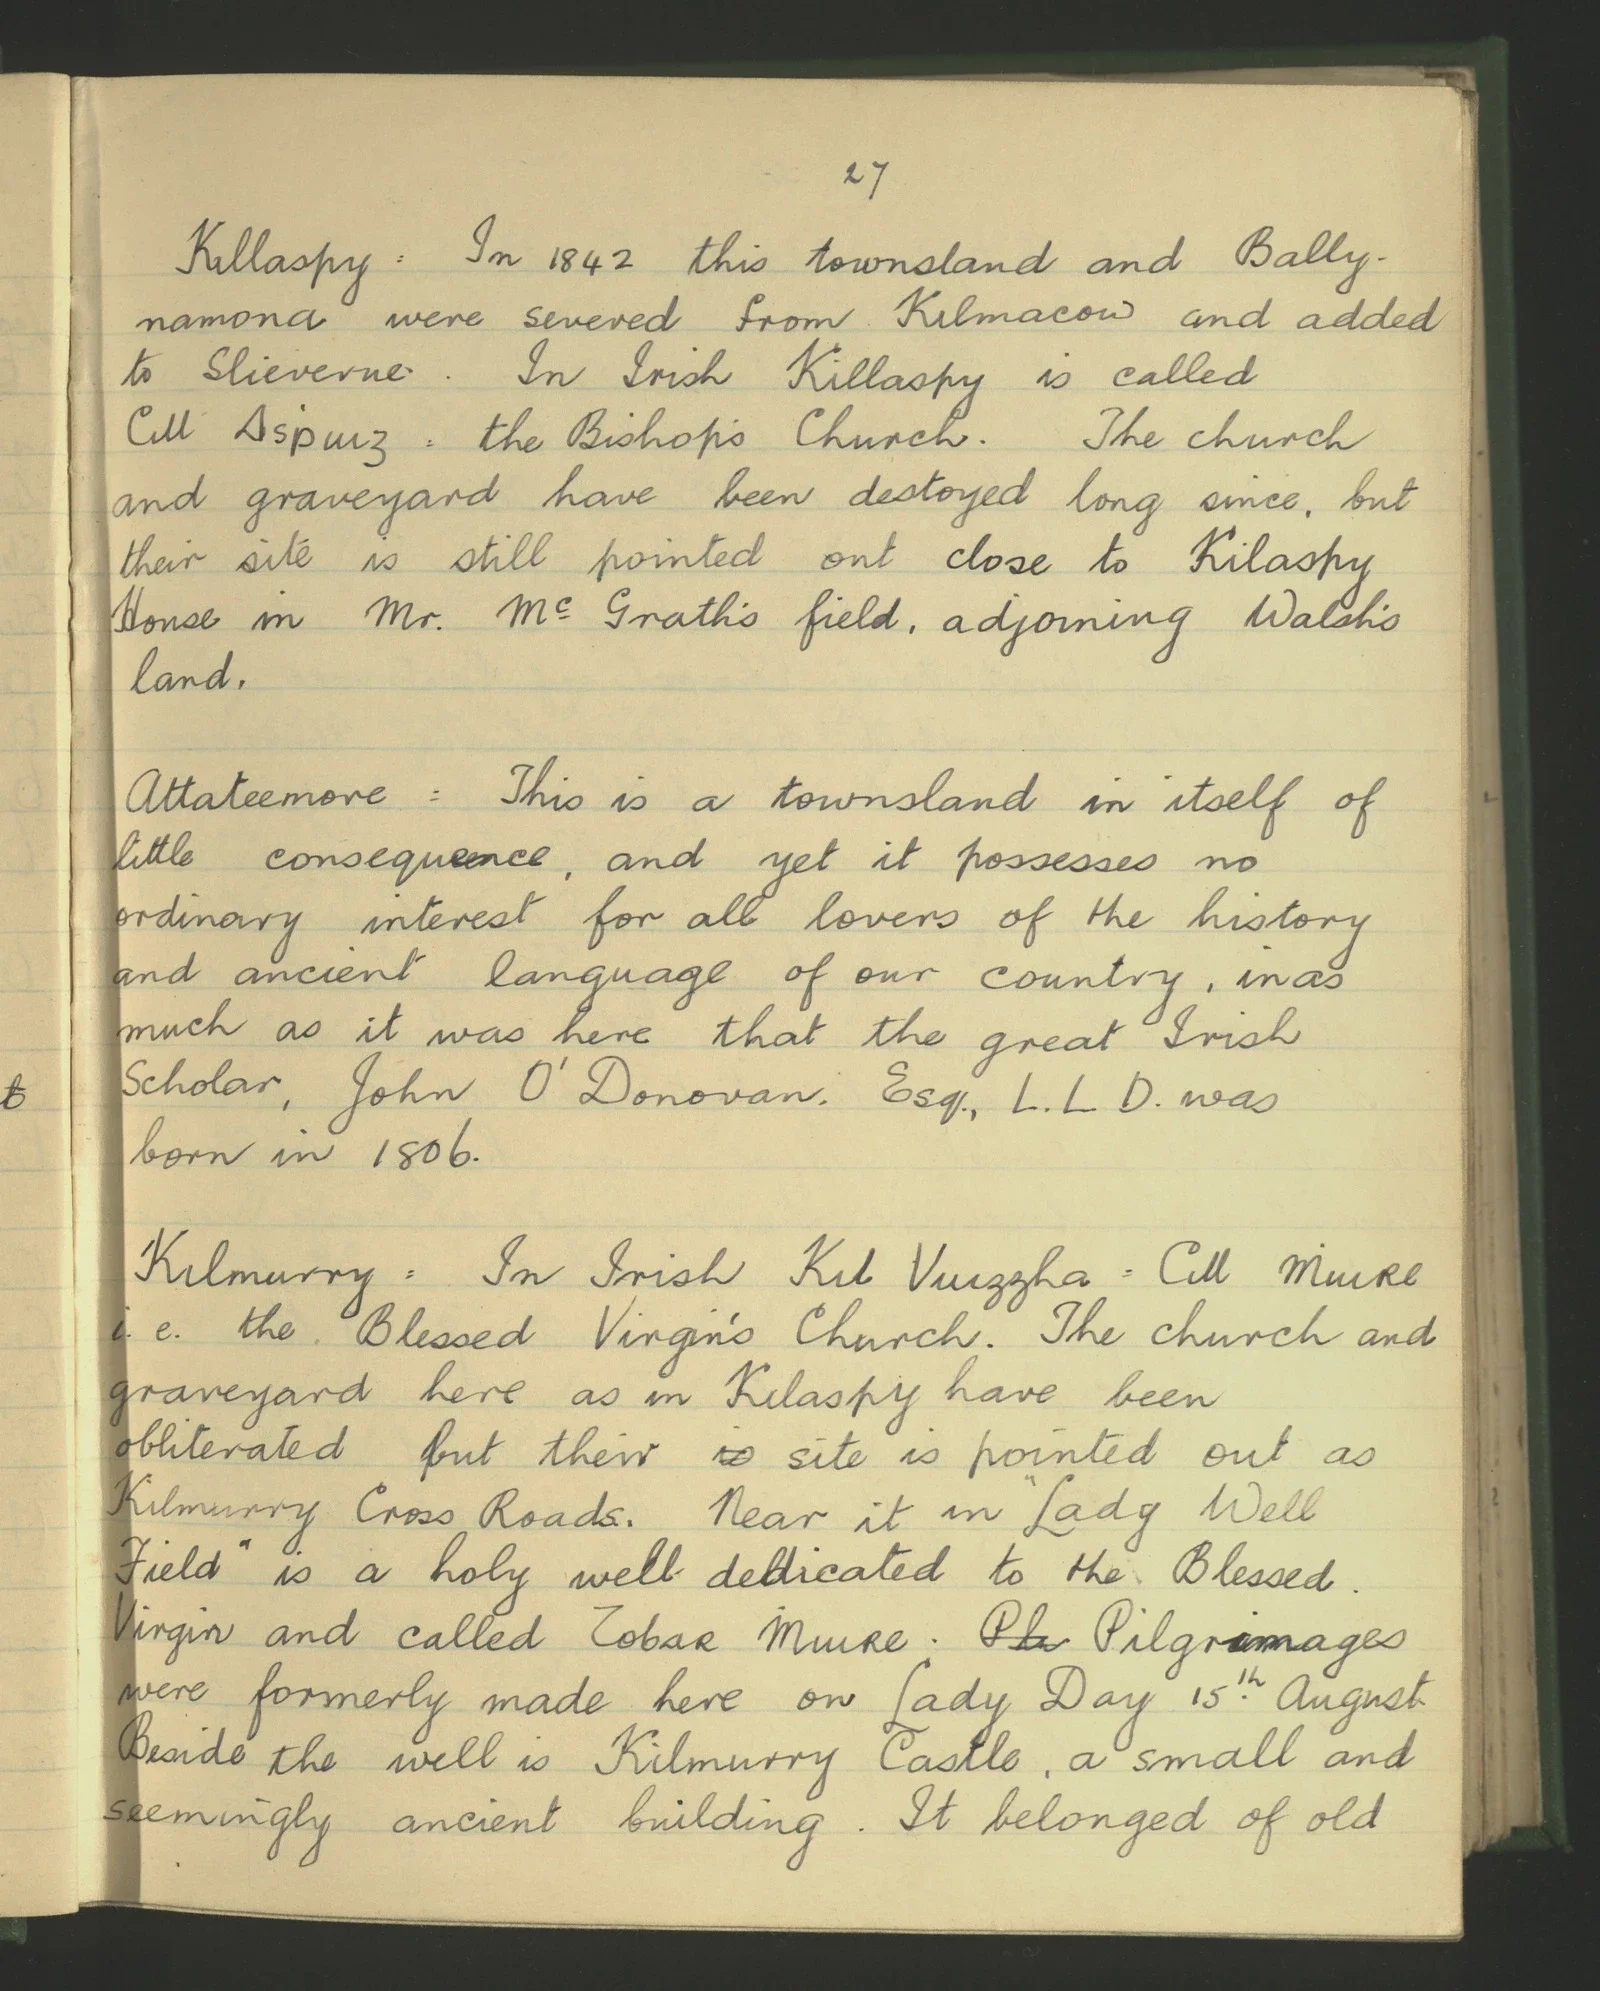 27
Killaspy : In 1842 this townsland and Bally-
namona were severed from Kilmacow and added
to Slieverue. In Irish Killaspy is called
Cill Aspuig : the Bishop's Church. The church
and graveyard have been destoyed long since, but
their site is still pointed out close to Kilaspy
House in Mr. Mc Grath's field, adjoining Walsh's
land.
Attateemore : This is a townsland in itself of
little consequence, and yet it possesses no
ordinary interest for all lovers of the history
and ancient language of our country, inas
much as it was here that the great Irish
Scholar, John O'Donovan. Esq., L.L D. was
born in 1806.
Kilmurry : In Irish Kil Vuizzha = Cill Muire
i. e. the Blessed Virgin's Church. The church and
graveyard here as in Kilaspy have been
obliterated but their is site is pointed out as
Kilmurry Cross Roads. Near it in "Lady Well
Field" is a holy well dedicated to the Blessed
Virgin and called Tobar Muire. Pilgrimages
were formerly made here on Lady Day 15th August
Beside the well is Kilmurry Castle, a small and
seemingly ancient building. It belonged of old